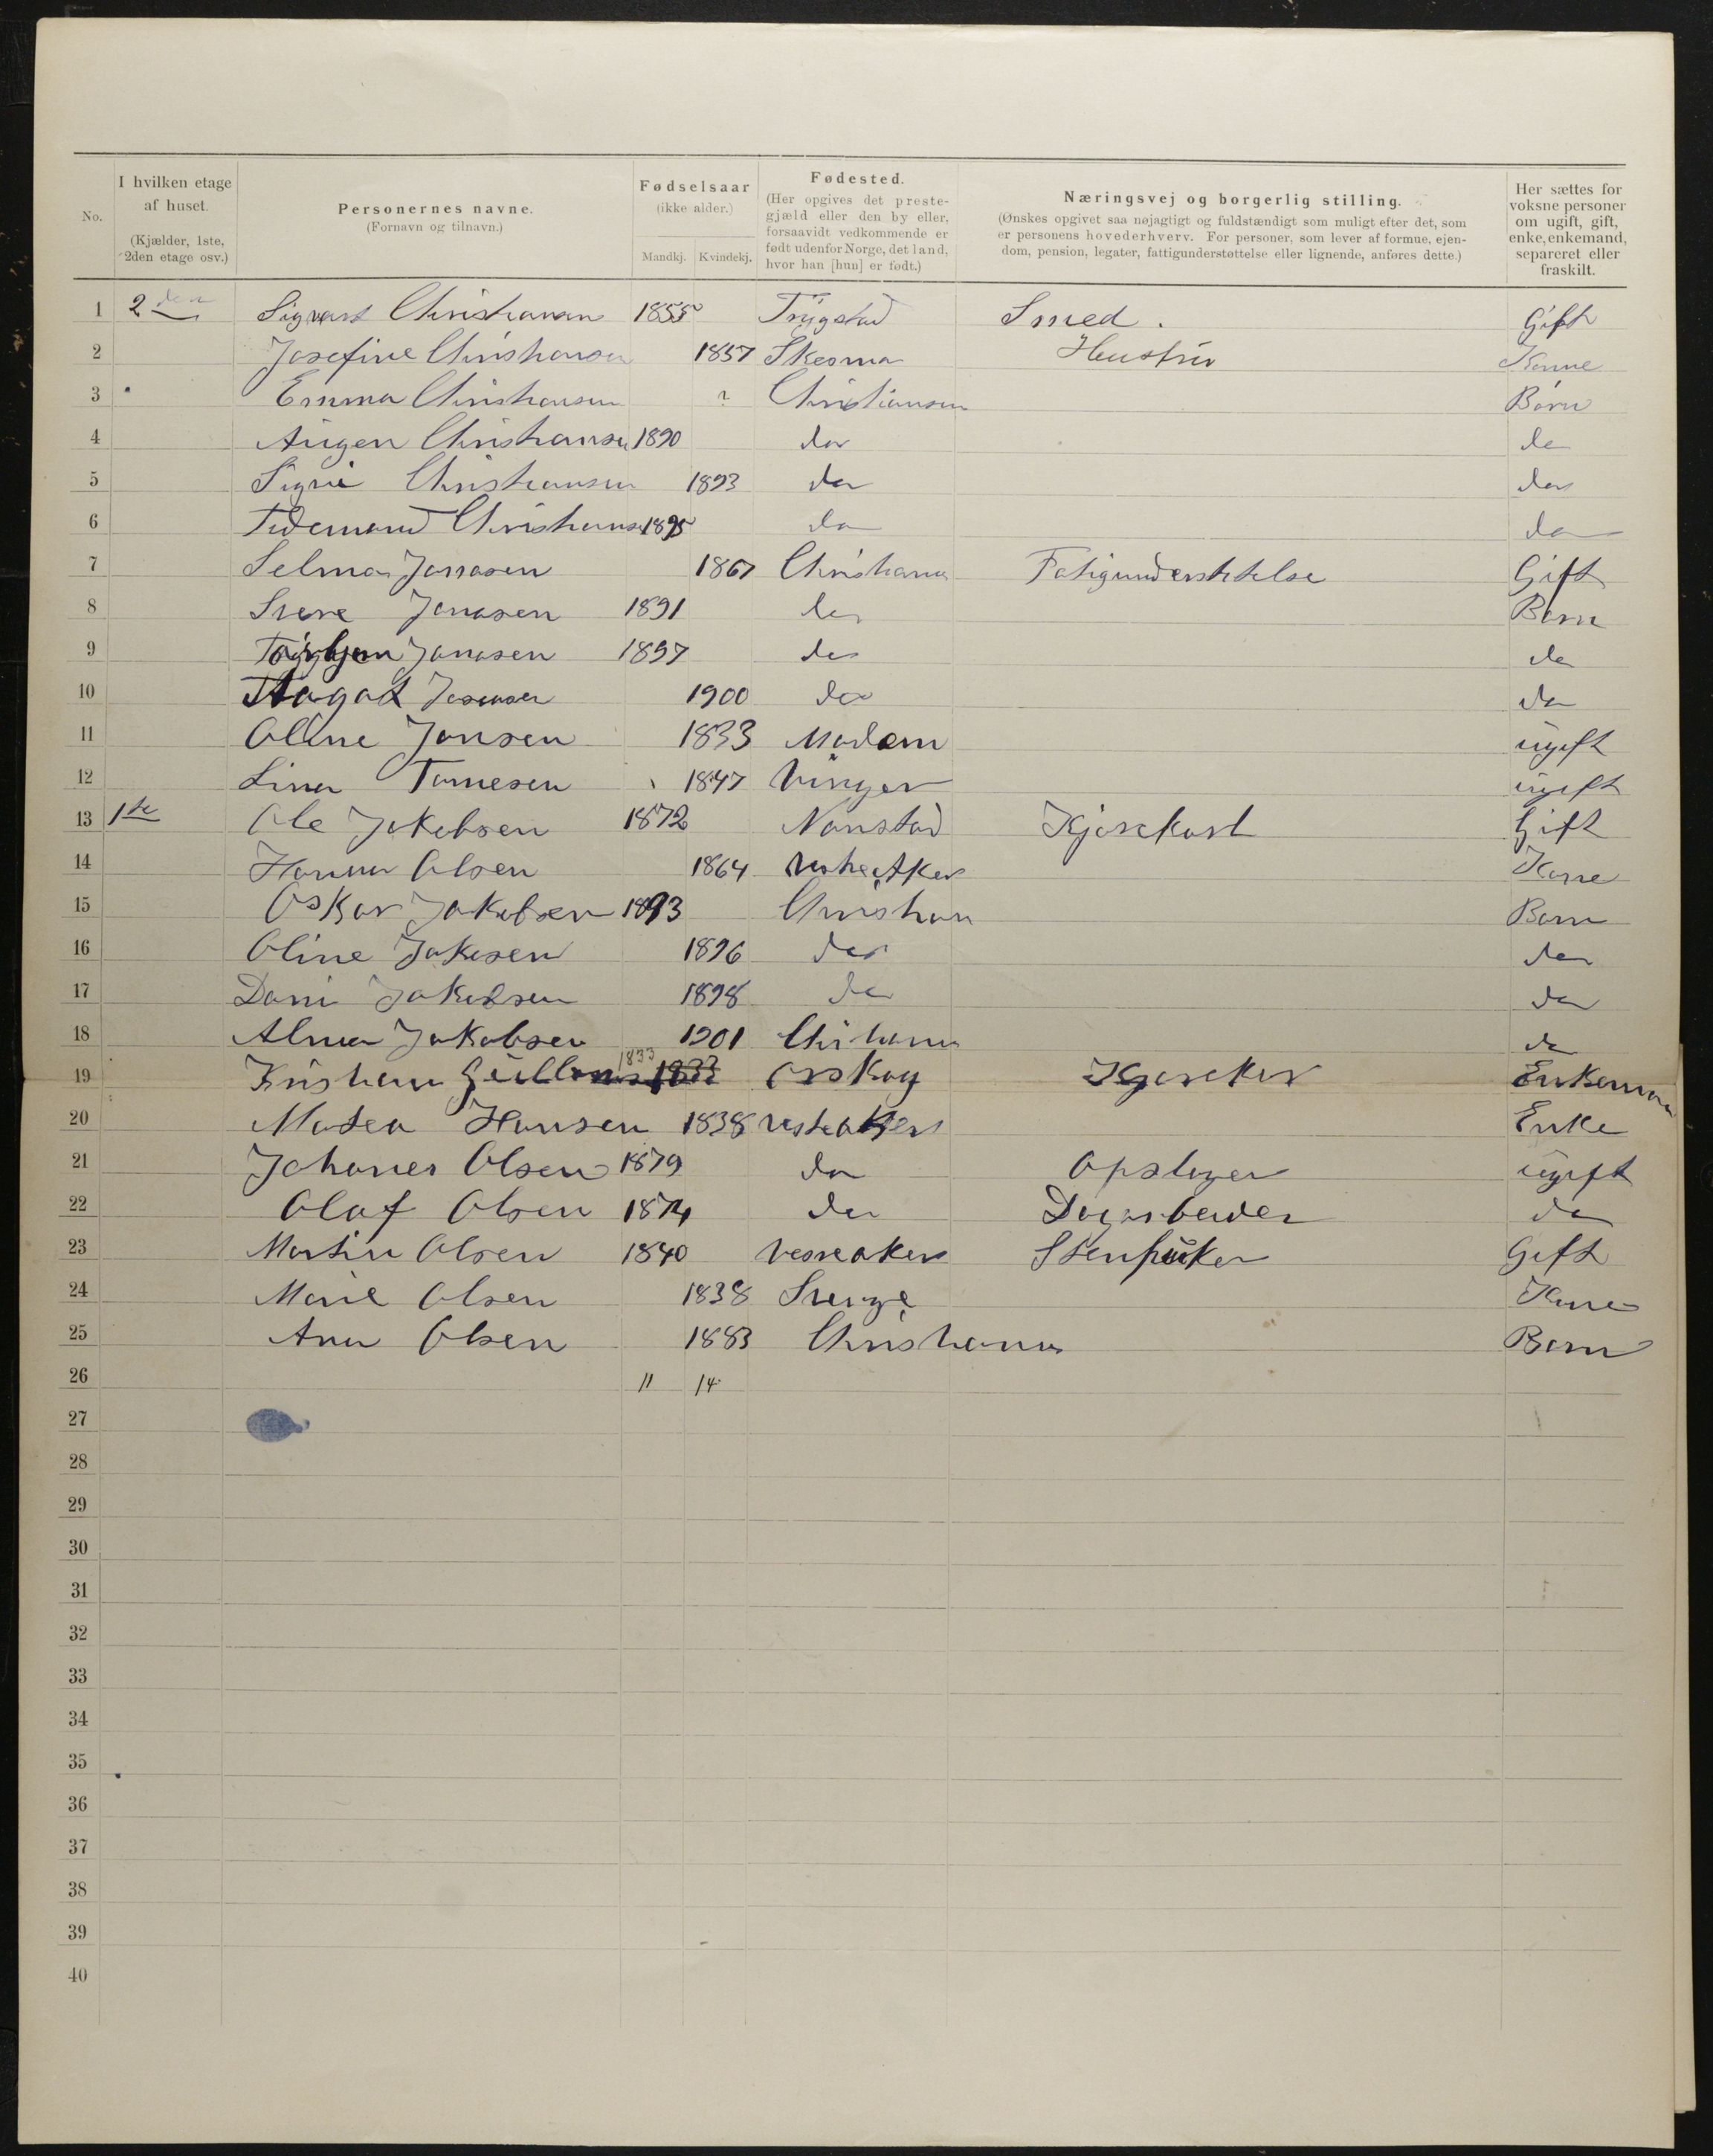 No.
I hvilken etage af huset. (Kjælder, 1ste, 2den etage osv.)
Personernes navne. (Fornavn og tilnavn.)
Fødselsaar (ikke alder.) Mandkj. Kvindekj.
Fødested. (Her opgives det prestegjæld eller den by eller, forsaavidt vedkommende er født udenfor Norge, det land, hvor han [hun] er født.)
Næringsvej og borgerlig stilling. (Ønskes opgivet saa nøjagtigt og fuldstændigt som muligt efter det, som er personens hovederhverv. For personer, som lever af formue, ejendom, pension, legater, fattigunderstøttelse eller lignende, anføres dette.)
Her sættes for voksne personer om ugift, gift, enke, enkemand, separeret eller fraskilt.
1 2den Christiansen 1855 Trygstad Smed. Gift
2 Josefine Christiansen 1857 Hustru Kone
3 Emma Christiansen ? Christiansen Børn
4 Christiansen 1890 do do
5 Christiansen 1893 do do
6 Tidemand Christiansen 1895 do do
7 Selma Jonasen 1867 Christiania Gift
8 Jonasen 1891 do Børn
9 Jonasen 1897 do do
10 1900 do do
11 Oline Jonsen 1833 Modum ugift
12 Lina 1847 Vinger ugift
13 1ste Ole Jakobsen 1872 Nanstad Kjørekarl Gift
14 Hanna Olsen 1864 Kone
15 Oskar Jakobsen 1893 Christian Barn
16 Oline Jakosen 1896 do do
17 Jakobsen 1898 do do
18 Alma Jakobsen 1901 do
19 Kristian 1833 1833 Enkeman
20 Matea Hansen 1838 Enke
21 Johanes Olsen 1879 do ugift
22 Olaf Olsen 1874 do do
23 Martin Olsen 1840 Stenpuker Gift
24 Marie Olsen 1838 Sverge Kone
25 Ana Olsen 1883 Christiania Barn
26 11 14
27
28
29
30
31
32
33
34
35
36
37
38
39
40